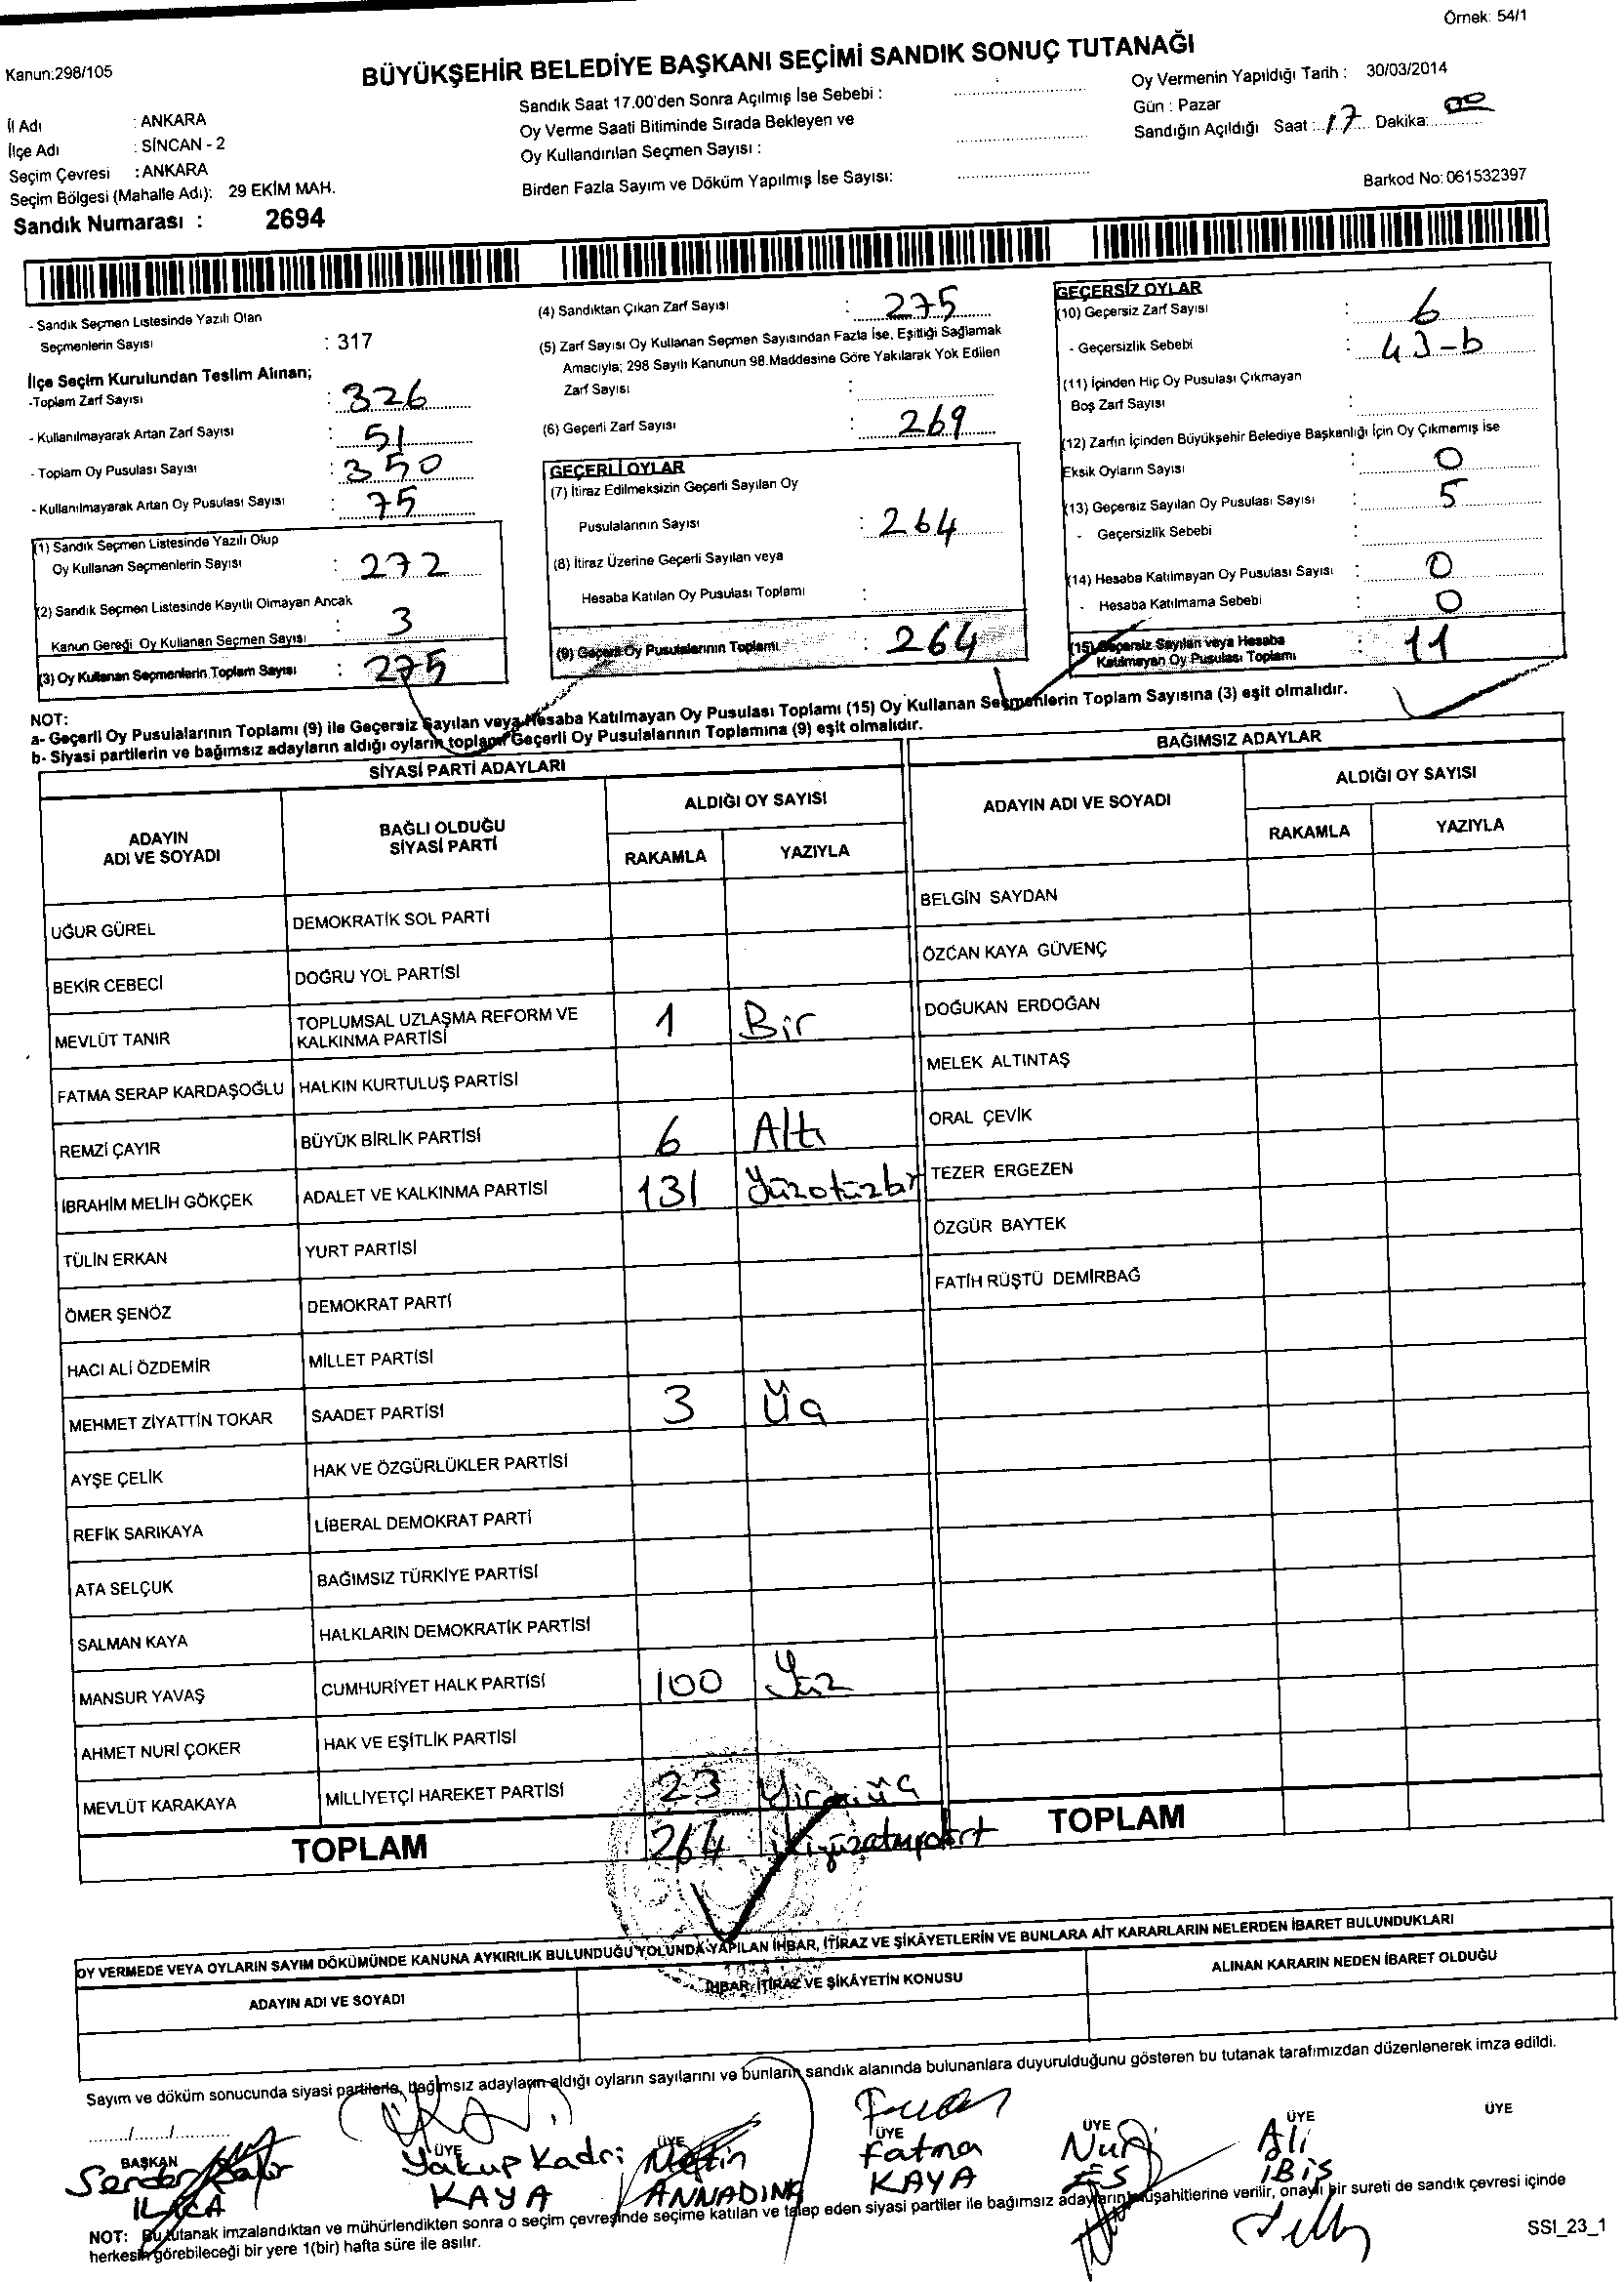 Örnek: 54/1
Kanun:298/105
BÜYÜKŞEHİR BELEDİYE BAŞKANI SEÇİMİ SANDIK SONUÇ TUTANAĞI
İl Adı : ANKARA
İlçe Adı : SİNCAN - 2
Seçim Çevresi : ANKARA
Seçim Bölgesi (Mahalle Adı): 29 EKİM MAH.
Sandık Numarası : 2694
Sandık Saat 17.00'den Sonra Açılmış İse Sebebi :
Oy Verme Saati Bitiminde Sırada Bekleyen ve
Oy Kullandırılan Seçmen Sayısı :
Birden Fazla Sayım ve Döküm Yapılmış İse Sayısı:
Oy Vermenin Yapıldığı Tarih : 30/03/2014
Gün : Pazar
Sandığın Açıldığı Saat : 17 Dakika: 00
Barkod No: 061532397
- Sandık Seçmen Listesinde Yazılı Olan
Seçmenlerin Sayısı : 317
İlçe Seçim Kurulundan Teslim Alınan;
-Toplam Zarf Sayısı : 326
- Kullanılmayarak Artan Zarf Sayısı : 51
- Toplam Oy Pusulası Sayısı : 350
- Kullanılmayarak Artan Oy Pusulası Sayısı : 75
(1) Sandık Seçmen Listesinde Yazılı Olup
Oy Kullanan Seçmenlerin Sayısı : 272
(2) Sandık Seçmen Listesinde Kayıtlı Olmayan Ancak
Kanun Gereği Oy Kullanan Seçmen Sayısı : 3
(3) Oy Kullanan Seçmenlerin Toplam Sayısı : 275
(4) Sandıktan Çıkan Zarf Sayısı : 275
(5) Zarf Sayısı Oy Kullanan Seçmen Sayısından Fazla İse, Eşitliği Sağlamak
Amacıyla; 298 Sayılı Kanunun 98.Maddesine Göre Yakılarak Yok Edilen
Zarf Sayısı :
(6) Geçerli Zarf Sayısı : 269
GEÇERLİ OYLAR
(7) İtiraz Edilmeksizin Geçerli Sayılan Oy
Pusulalarının Sayısı : 264
(8) İtiraz Üzerine Geçerli Sayılan veya
Hesaba Katılan Oy Pusulası Toplamı :
(9) Geçerli Oy Pusulalarının Toplamı : 264
GEÇERSİZ OYLAR
(10) Geçersiz Zarf Sayısı : 6
- Geçersizlik Sebebi : 43-b
(11) İçinden Hiç Oy Pusulası Çıkmayan
Boş Zarf Sayısı :
(12) Zarfın İçinden Büyükşehir Belediye Başkanlığı İçin Oy Çıkmamış ise
Eksik Oyların Sayısı : 0
(13) Geçersiz Sayılan Oy Pusulası Sayısı : 5
- Geçersizlik Sebebi :
(14) Hesaba Katılmayan Oy Pusulası Sayısı : 0
- Hesaba Katılmama Sebebi : 0
(15) Geçersiz Sayılan veya Hesaba
Katılmayan Oy Pusulası Toplamı : 11
NOT:
a- Geçerli Oy Pusulalarının Toplamı (9) ile Geçersiz Sayılan veya Hesaba Katılmayan Oy Pusulası Toplamı (15) Oy Kullanan Seçmenlerin Toplam Sayısına (3) eşit olmalıdır.
b- Siyasi partilerin ve bağımsız adayların aldığı oyların toplamı Geçerli Oy Pusulalarının Toplamına (9) eşit olmalıdır.
SİYASİ PARTİ ADAYLARI
ADAYIN ADI VE SOYADI BAĞLI OLDUĞU SİYASİ PARTİ ALDIĞI OY SAYISI
RAKAMLA YAZIYLA
UĞUR GÜREL DEMOKRATİK SOL PARTİ
BEKİR CEBECİ DOĞRU YOL PARTİSİ
MEVLÜT TANIR TOPLUMSAL UZLAŞMA REFORM VE KALKINMA PARTİSİ 1 Bir
FATMA SERAP KARDAŞOĞLU HALKIN KURTULUŞ PARTİSİ
REMZİ ÇAYIR BÜYÜK BİRLİK PARTİSİ 6 Altı
İBRAHİM MELİH GÖKÇEK ADALET VE KALKINMA PARTİSİ 131 Yüzotuzbir
TÜLİN ERKAN YURT PARTİSİ
ÖMER ŞENÖZ DEMOKRAT PARTİ
HACI ALİ ÖZDEMİR MİLLET PARTİSİ
MEHMET ZİYATTİN TOKAR SAADET PARTİSİ 3 Üç
AYŞE ÇELİK HAK VE ÖZGÜRLÜKLER PARTİSİ
REFİK SARIKAYA LİBERAL DEMOKRAT PARTİ
ATA SELÇUK BAĞIMSIZ TÜRKİYE PARTİSİ
SALMAN KAYA HALKLARIN DEMOKRATİK PARTİSİ
MANSUR YAVAŞ CUMHURİYET HALK PARTİSİ 100 Yüz
AHMET NURİ ÇOKER HAK VE EŞİTLİK PARTİSİ
MEVLÜT KARAKAYA MİLLİYETÇİ HAREKET PARTİSİ 23 Yirmiüç
TOPLAM 264 ikiyüzatmışdört
BAĞIMSIZ ADAYLAR
ADAYIN ADI VE SOYADI ALDIĞI OY SAYISI
RAKAMLA YAZIYLA
BELGİN SAYDAN
ÖZCAN KAYA GÜVENÇ
DOĞUKAN ERDOĞAN
MELEK ALTINTAŞ
ORAL ÇEVİK
TEZER ERGEZEN
ÖZGÜR BAYTEK
FATİH RÜŞTÜ DEMİRBAĞ
TOPLAM
OY VERMEDE VEYA OYLARIN SAYIM DÖKÜMÜNDE KANUNA AYKIRILIK BULUNDUĞU YOLUNDA YAPILAN İHBAR, İTİRAZ VE ŞİKÂYETLERİN VE BUNLARA AİT KARARLARIN NELERDEN İBARET BULUNDUKLARI
ADAYIN ADI VE SOYADI İHBAR, İTİRAZ VE ŞİKÂYETİN KONUSU ALINAN KARARIN NEDEN İBARET OLDUĞU
Sayım ve döküm sonucunda siyasi partilerle, bağımsız adayların aldığı oyların sayılarını ve bunların sandık alanında bulunanlara duyurulduğunu gösteren bu tutanak tarafımızdan düzenlenerek imza edildi.
....../....../............
BAŞKAN ÜYE ÜYE ÜYE ÜYE ÜYE ÜYE
Yakup Kadri Metin Fatma Nuri Ali
ILICA KAYA KAYA ES İBİŞ
NOT: Bu tutanak imzalandıktan ve mühürlendikten sonra o seçim çevresinde seçime katılan ve talep eden siyasi partiler ile bağımsız adayların müşahitlerine verilir, onaylı bir sureti de sandık çevresi içinde
herkesin görebileceği bir yere 1(bir) hafta süre ile asılır.
SSI_23_1